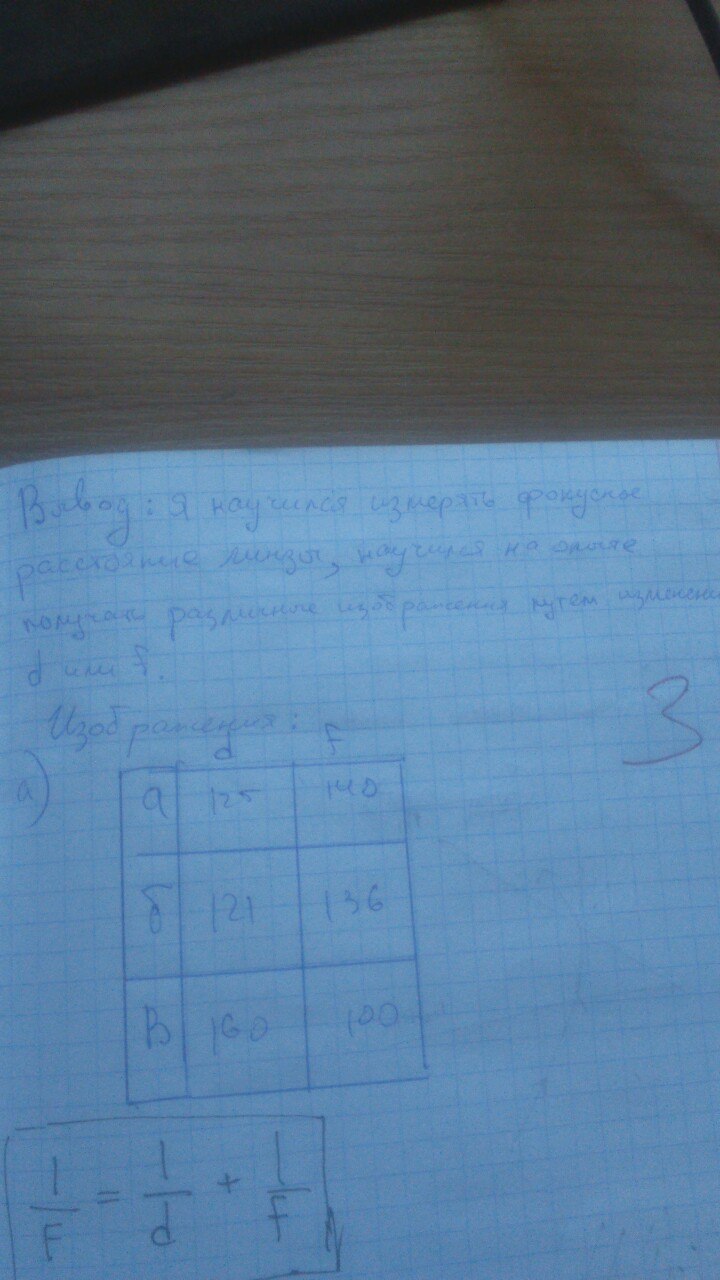 Вывод: Я научился измерять фокусное
расстояние линзы, научился на опыте
получать различные изображения путем изменени
d или F.
Изображения:
3
а)
d F
а 125 140
б 121 136
В 160 100
1/F = 1/d + 1/F